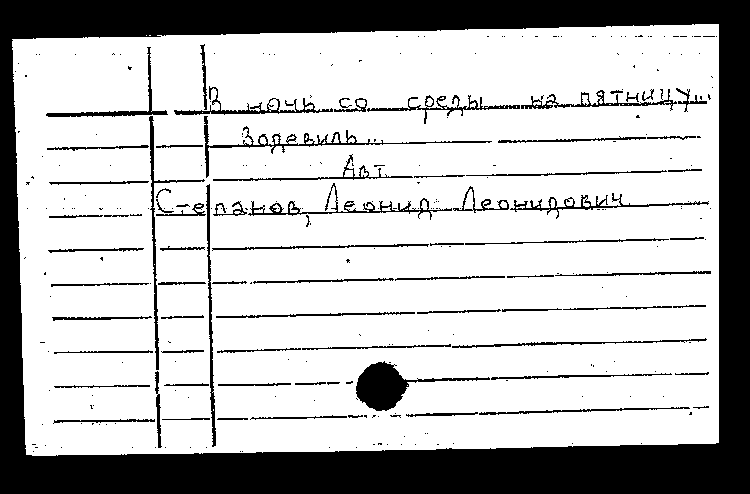 В ночь со среды на пятницу...
Водевиль...
Авт.
Степанов, Леонид Леонидович